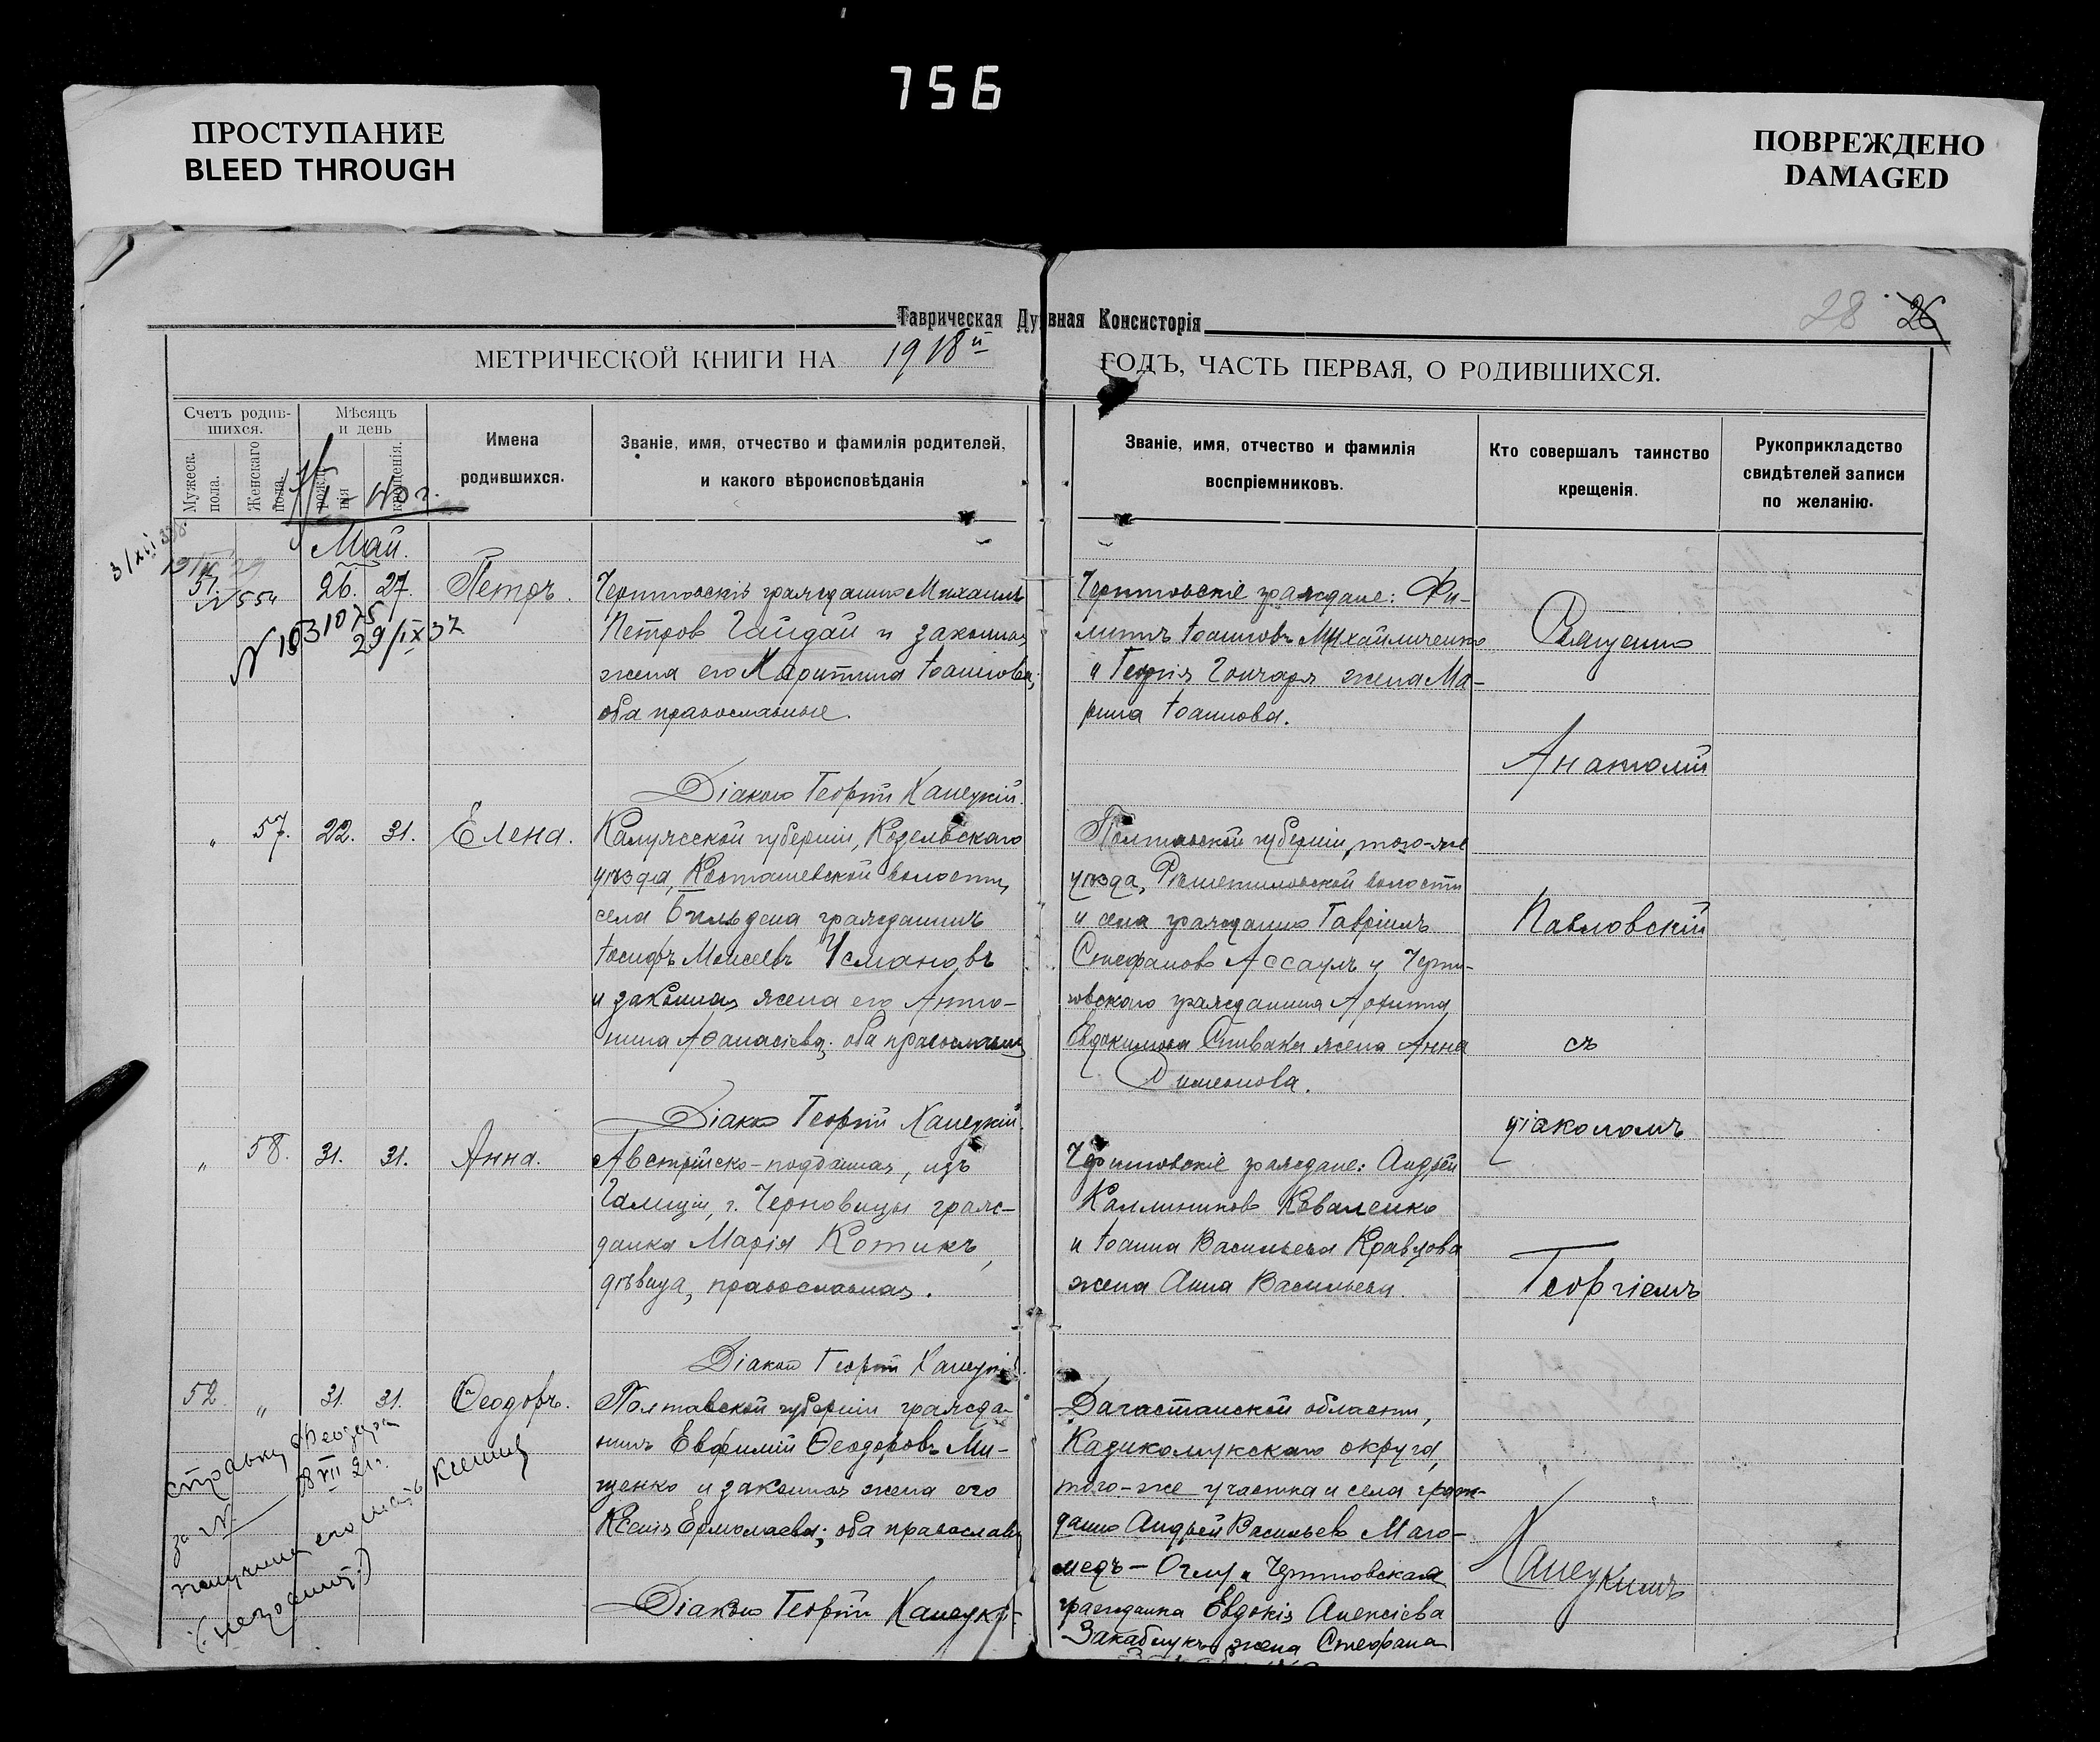 756
ПРОСТУПАНИЕ
BLEED THROUGH
ПОВРЕЖДЕНО
DAMAGED
Таврическая Духовная Консисторія
28 26
МЕТРИЧЕСКОЙ КНИГИ НА 1918й ГОДЪ, ЧАСТЬ ПЕРВАЯ, О РОДИВШИХСЯ.
Счетъ родившихся.
Мужеск. пола.
Женскаго пола.
Мѣсяцъ и день
рожденія
крещенія.
Имена родившихся.
Званіе, имя, отчество и фамилія родителей, и какого вѣроисповѣданія
Званіе, имя, отчество и фамилія воспріемниковъ.
Кто совершалъ таинство крещенія.
Рукоприкладство свидѣтелей записи по желанію.
Май.
51. 26. 27. Петръ.
N 554
N 1031075
29/IX 37
Михаилъ
Петровъ Гайдай и законная
жена его Харитина Іоаннова;
оба православные.
Діаконъ Георгій Ханецкій.
граждане: Фи-
липпъ Іоанновъ Михайличенко
и Георгія Гончаря жена Ма-
рина Іоаннова.
" 57. 22. 31. Елена.
Калужской губерніи, Козельскаго
уѣзда, волости,
села гражданинъ
Іосифъ Моисеевъ Усмановъ
и законная жена его Анто-
нина Аѳанасіева; оба православные
Діаконъ Георгій Ханецкій.
Полтавской губерніи, того-же
уѣзда, Рѣшетиловской волости
и села гражданинъ Гавріилъ
Стефановъ Ассаулъ и
гражданина
Евдокимова Спивака жена Анна
Симеонова.
" 58. 31. 31. Анна.
Австрійско-подданная, изъ
Галиціи, г. Черновицы граж-
данка Марія Котикъ,
дѣвица, православная.
Діаконъ Георгій Ханецкій.
граждане: Андрей
Каллиниковъ Коваленко
и Іоанна Васильева Кравцова
жена Анна Васильева.
52. " 31. 31. Ѳеодоръ.
Полтавской губерніи гражда-
нинъ Евфимій Ѳеодоровъ Ми-
щенко и законная жена его
Ксенія Ермолаева; оба православн
Діаконъ Георгій Ханецкій
Дагестанской области,
Казикомукскаго округа,
того-же участка и села граж-
данинъ Андрей Васильевъ Маго-
медъ-Оглу и
гражданка Евдокія Алексіева
Закаблукъ, жена Стефана
Священникъ
Анатолій
Павловскій
съ
діакономъ
Георгіемъ
Ханецкимъ
справку
за N
получила его мать